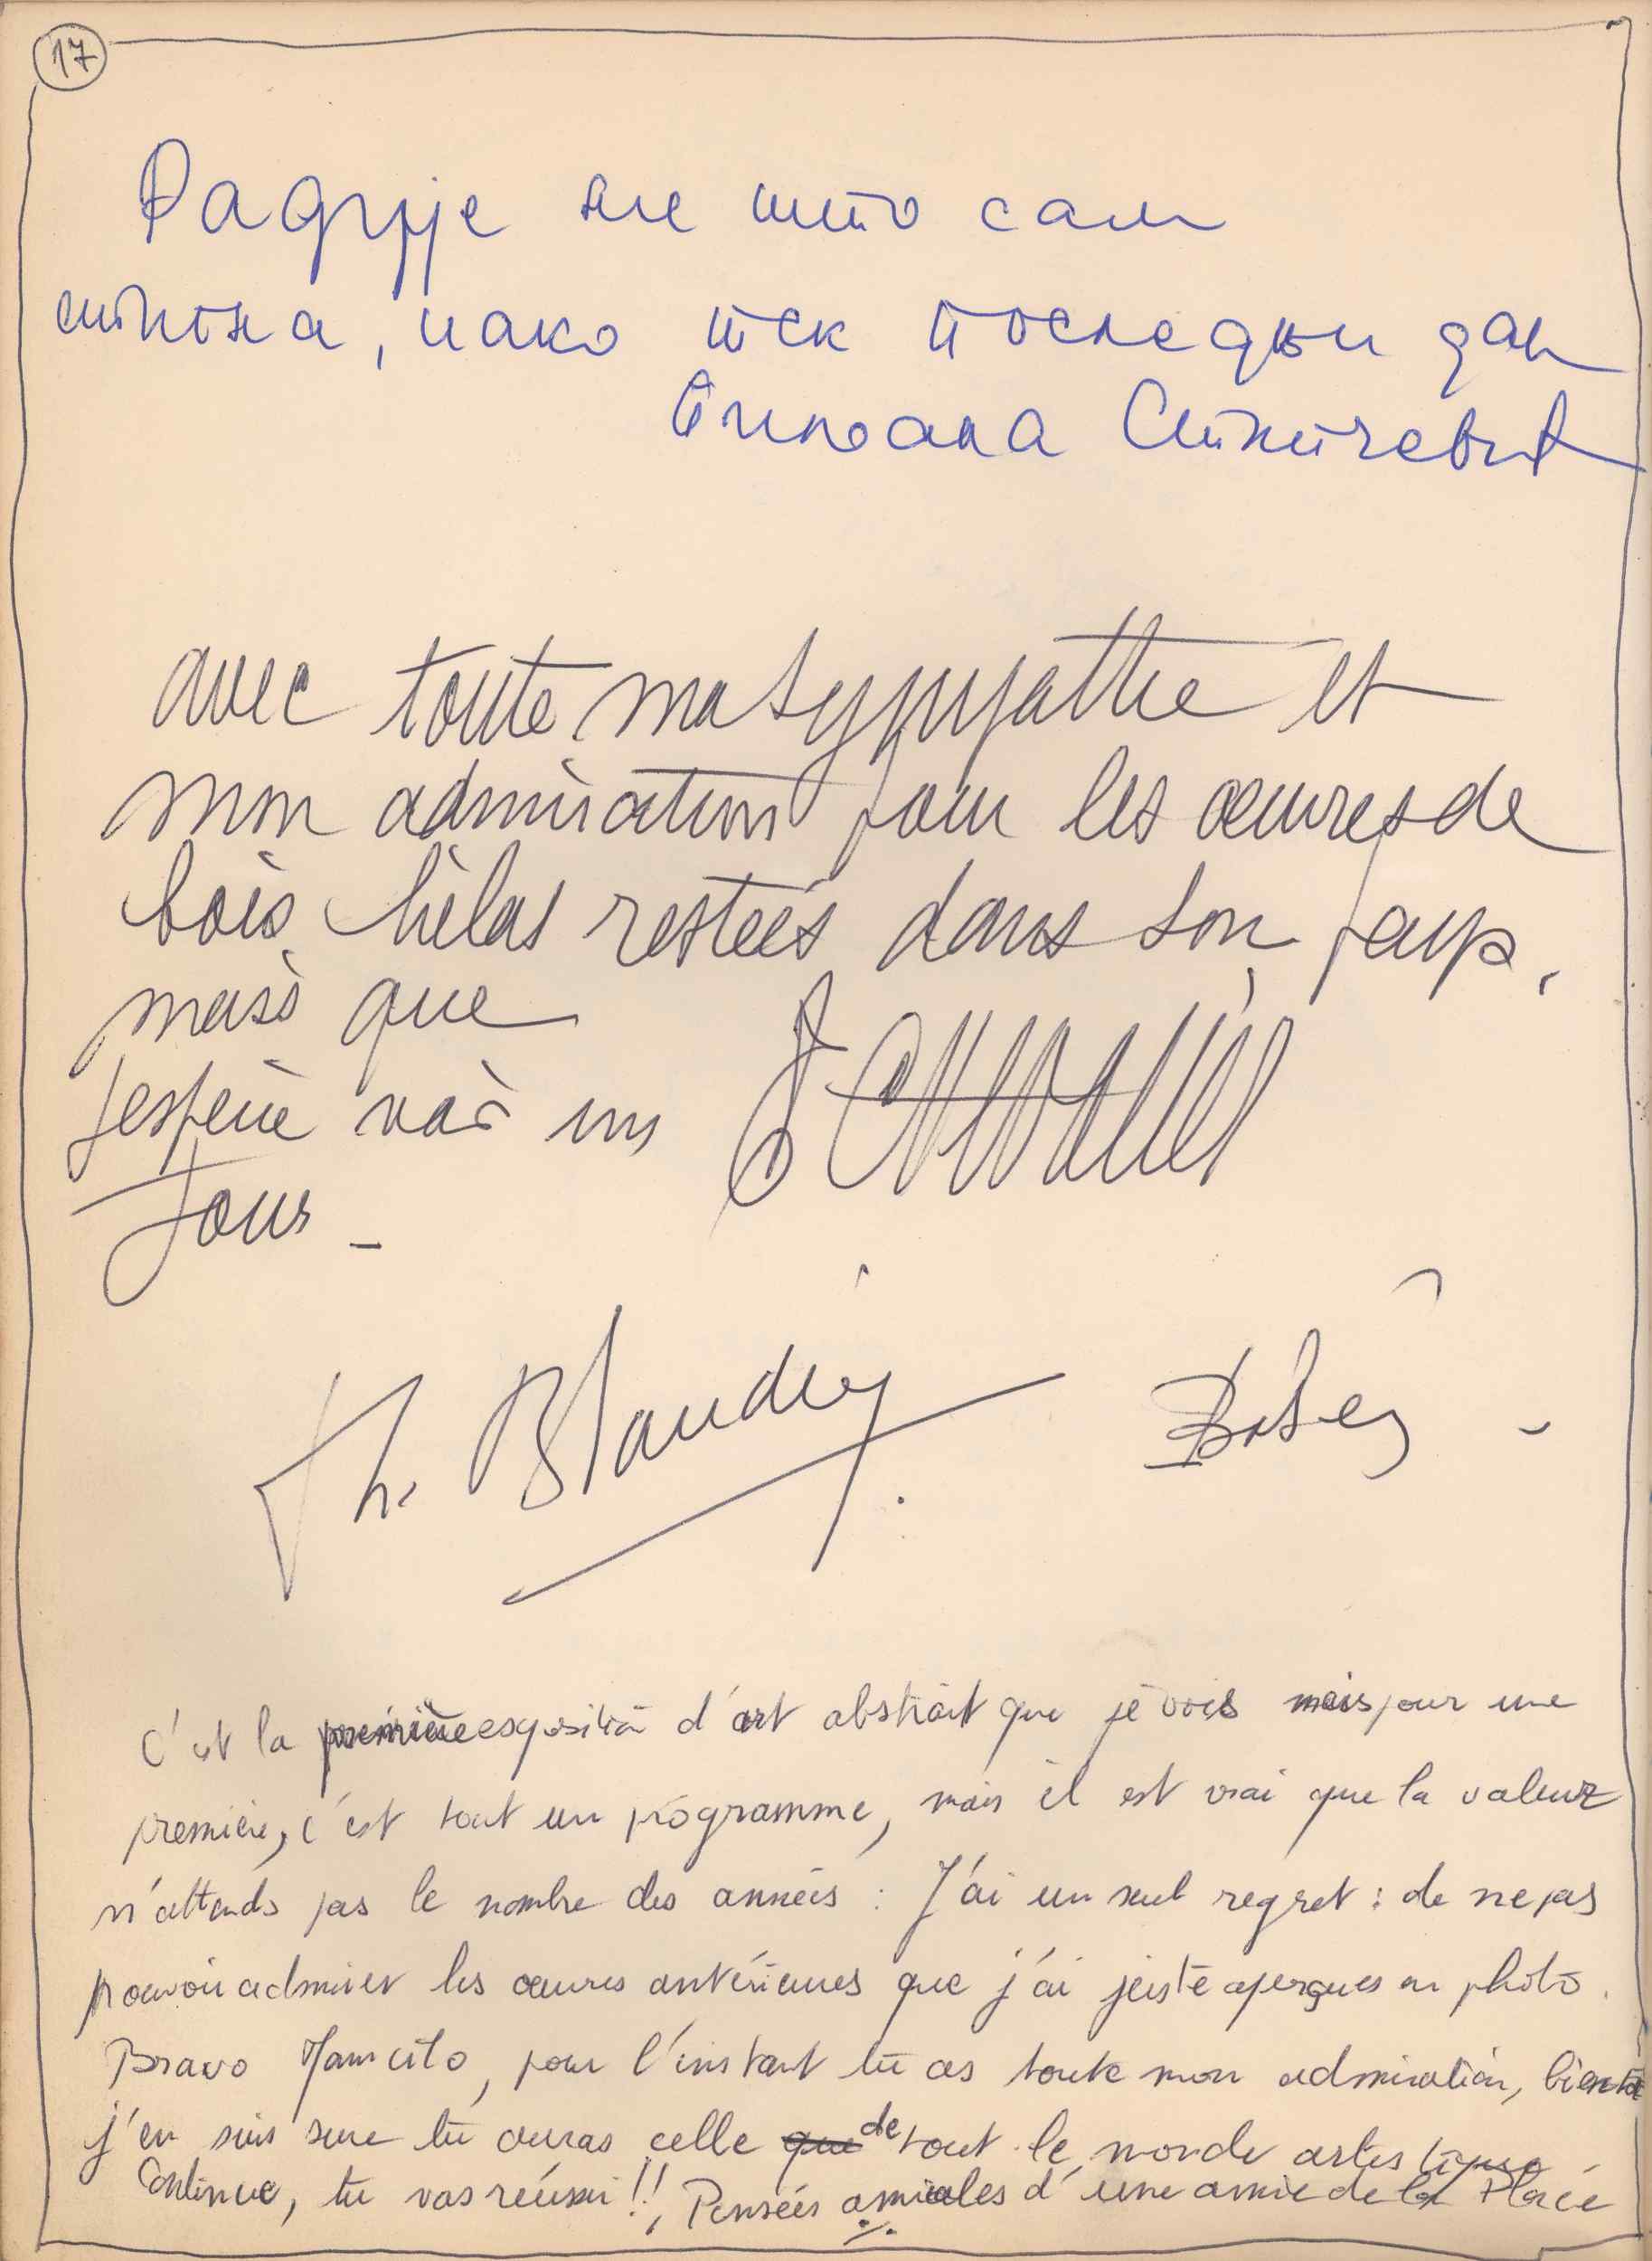 17
Радује ме што сам
стигла, иако тек последњи дан
avec toute ma sympathie et
mon admiration pour les œuvres de
bois hélas restées dans son pays,
mais que
j'espère voir un
Jour_
Th. Blandin
C'est la première exposition d'art abstrait que je vois mais pour une
première, c'est tout un programme, mais il est vrai que la valeur
n'attends pas le nombre des années : J'ai un seul regret : de ne pas
pouvoir admirer les œuvres antérieures que j'ai juste aperçues en photo.
Bravo pour l'instant tu as toute mon admiration, bientôt
j'en suis sure tu auras celle de tout le monde artistique
Continue, tu vas réussir !!, Pensées amicales d'une amie de la Place